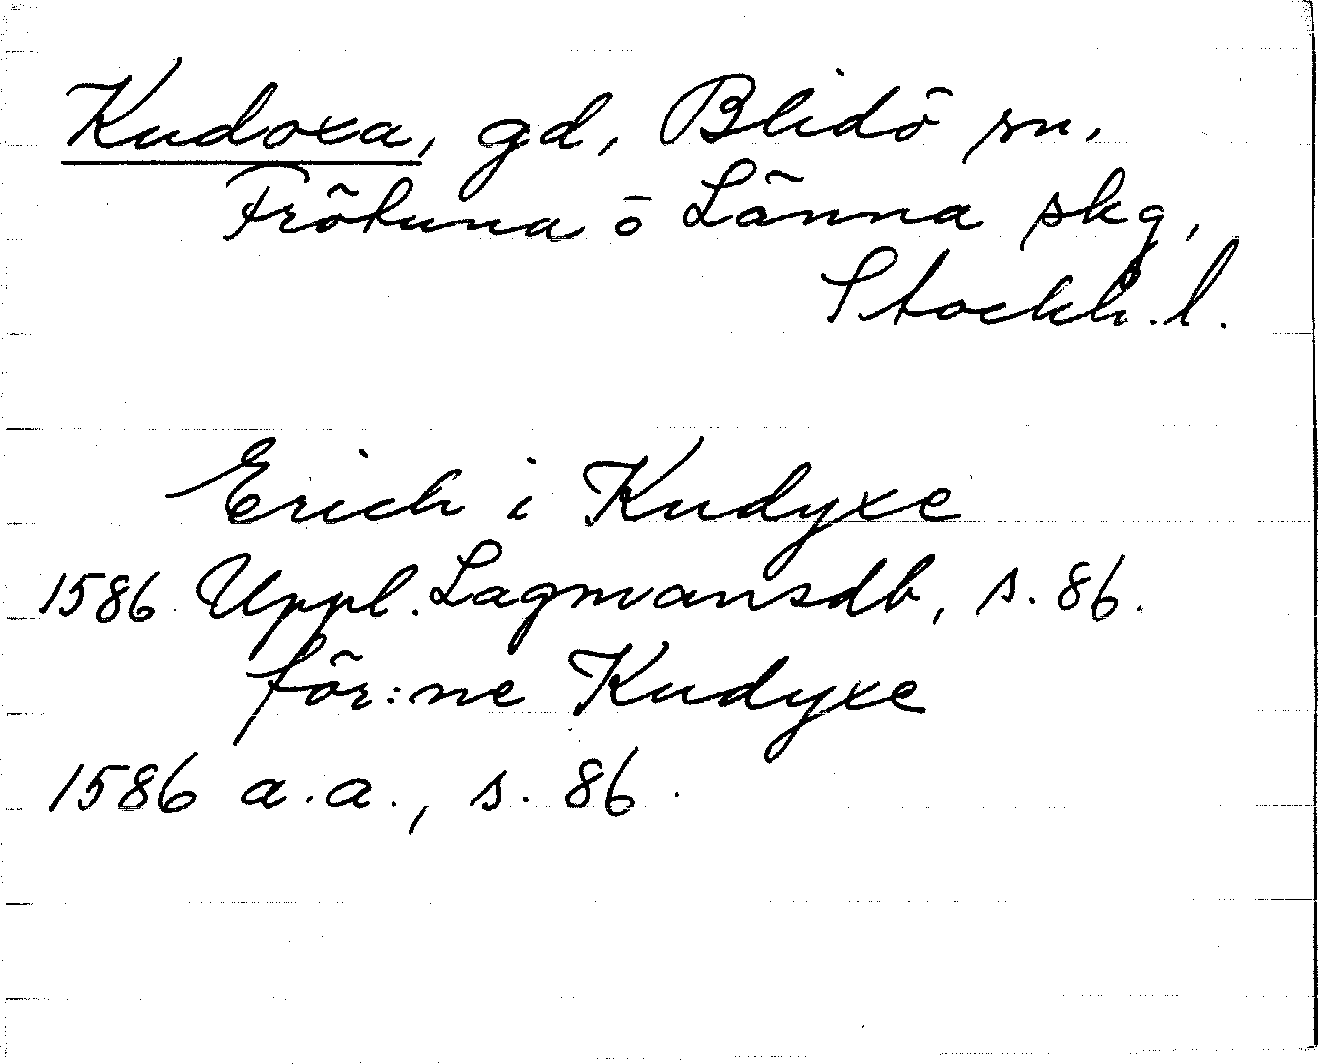 Kudoxa, gd, Blidö sn,
Frötuna ō Länna skg,
Stockh. l.
Erich i Kudyxe
1586 Uppl. Lagmansdb, s. 86.
för:ne Kudyxe
1586 a.a., s. 86.